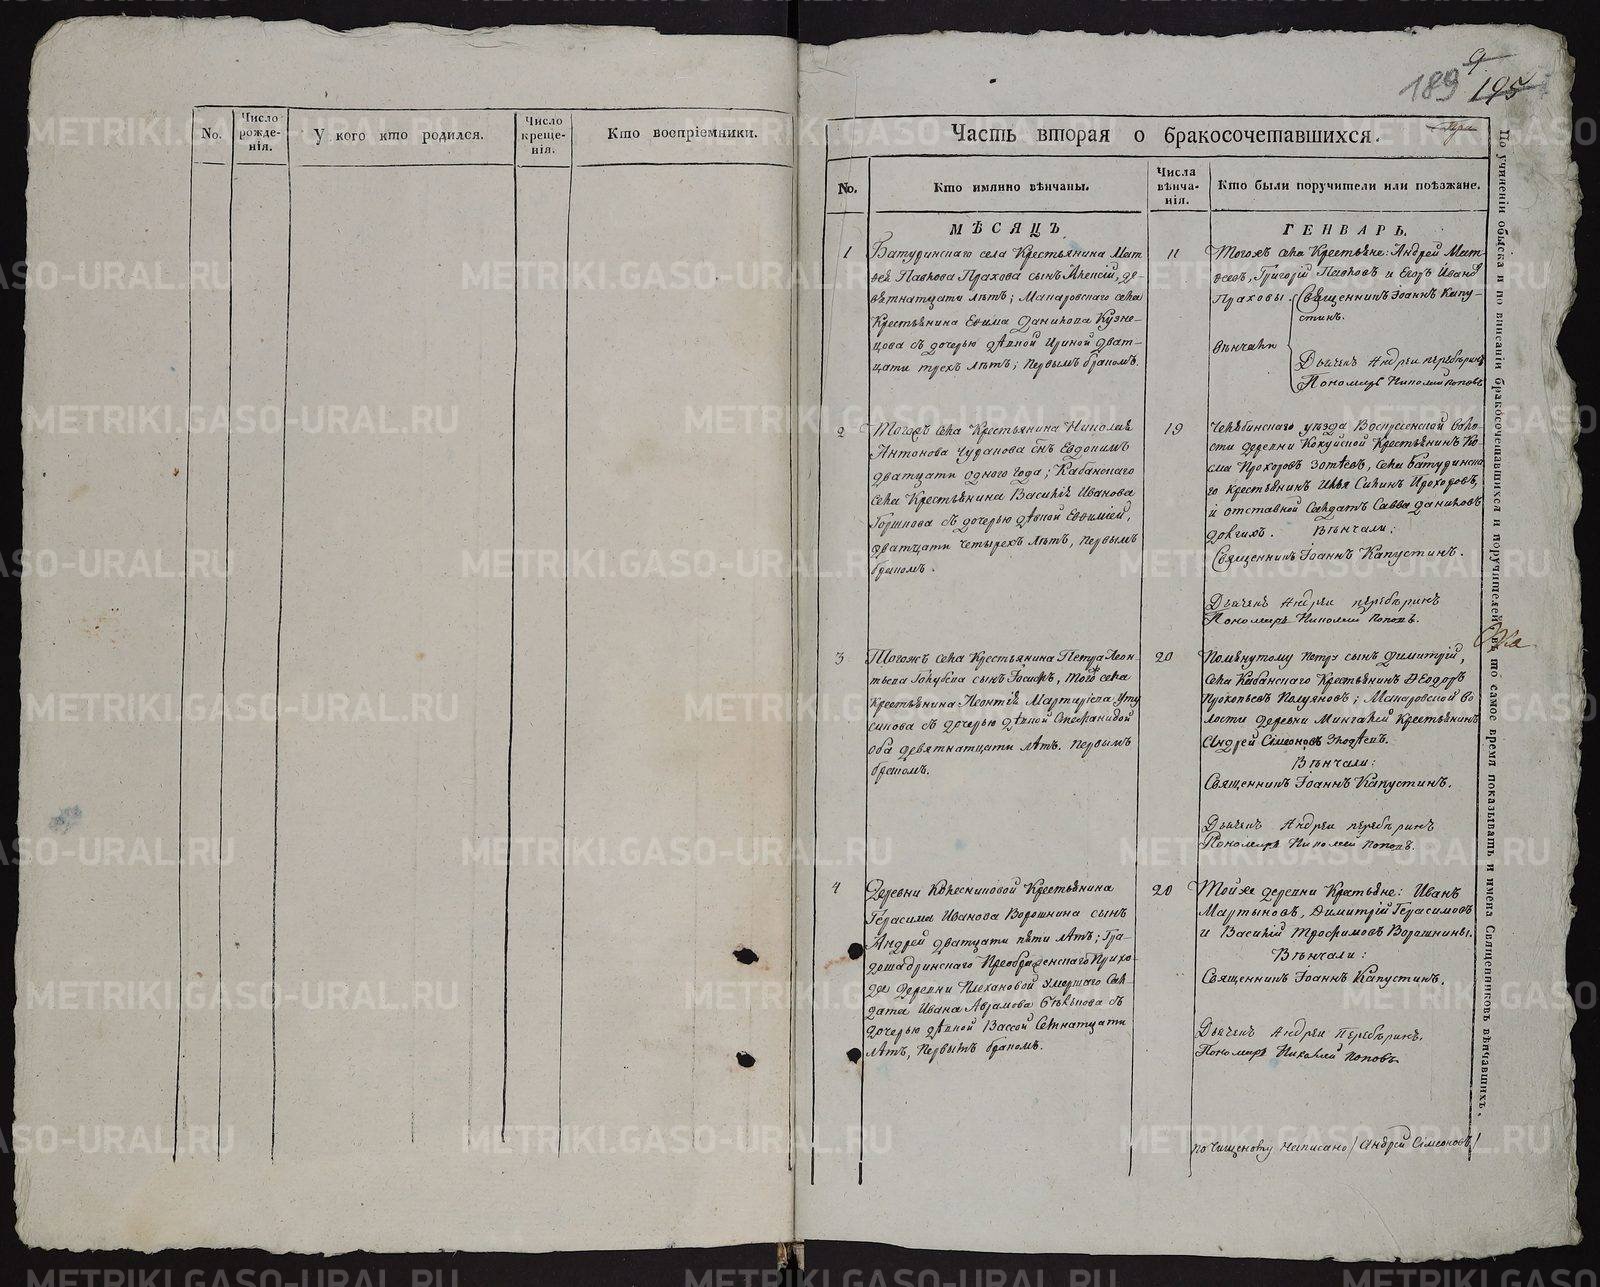 No.
Число рожде-нія.
У кого кто родился.
Число креще-нія.
Кто воспріемники.
189
195
Часть вторая о бракосочетавшихся.
No.
Кто имянно вѣнчаны.
Числа вѣнча-нія.
Кто были поручители или поѣзжане.
МѢСЯЦЪ
ГЕНВАРЬ.
1
Батуринскаго села Крестьянина Мат-
вея Павлова Прахова сынъ Алексій, де-
вятнатцати лѣтъ; Макаровскаго села
Крестьянина Евѳима Данилова Кузне-
цова съ дочерью дѣвкой Ириной дват-
цати трехъ лѣтъ; первымъ бракомъ.
11
Тогожъ села Крестьяне: Андрей Мат-
веевъ, Григорій Павловъ и Егоръ Ивановъ
Праховы.
вѣнчали
Священникъ Іоаннъ Капу-
стинъ.
Дьячекъ Андрей
Пономарь Николай Поповъ.
2
Тогожъ села Крестьянина Николая
Антонова Чуракова сынъ Евдокимъ
дватцати одного года; Кабанскаго
села Крестьянина Василія Иванова
Горшкова съ дочерью дѣвкой Евѳиміей,
дватцати четырехъ лѣтъ, первымъ
бракомъ.
19
Челябинскаго уѣзда Воскресенской воло-
сти деревни Кокуйской Крестьянинъ Ко-
сма Прохоровъ Зотѣевъ, села Батуринска-
го Крестьянинъ Илья Силинъ Прохоровъ,
и отставной Салдатъ Савва Даниловъ
Долгихъ. Вѣнчали:
Священникъ Іоаннъ Капустинъ.
Дьячекъ Андрей
Пономарь Николай Поповъ.
3
Тогожъ села Крестьянина Петра Леон-
тьева Голубева сынъ Іосифъ, того села
Крестьянина Леонтія Мартиріева
съ дочерью дѣвкой Стефанидой
оба девятнатцати лѣтъ. Первымъ
бракомъ.
20
Помянутому Петру сынъ Димитрій,
села Кабанскаго Крестьянинъ Ѳеодоръ
Прокопьевъ Полуяновъ; Макаровской во-
лости деревни Мингалей Крестьянинъ
Андрей Сімеоновъ
Вѣнчали:
Священникъ Іоаннъ Капустинъ.
Дьячекъ Андрей
Пономарь Николай Поповъ.
4
Деревни Колесниковой Крестьянина
Герасима Иванова Ворошнина сынъ
Андрей дватцати пяти лѣтъ; Гра-
да Шадринскаго Преображенскаго Прихо-
да деревни Плехановой умершаго Сал-
дата Ивана Аврамова съ
дочерью дѣвкой Вассой
лѣтъ, первымъ бракомъ.
20
Тойже деревни Крестьяне: Иванъ
Мартыновъ, Димитрій Герасимовъ
и Василій Трофимовъ Ворошнины.
Вѣнчали:
Священникъ Іоаннъ Капустинъ.
Дьячекъ Андрей
Пономарь Николай Поповъ
по чищеному написано / Андрей Сімеоновъ /
По учиненіи обыска и по вписаніи бракосочетавшихся и поручителей въ то самое время показывать и имена Священниковъ вѣнчавшихъ.
METRIKI.GASO-URAL.RU